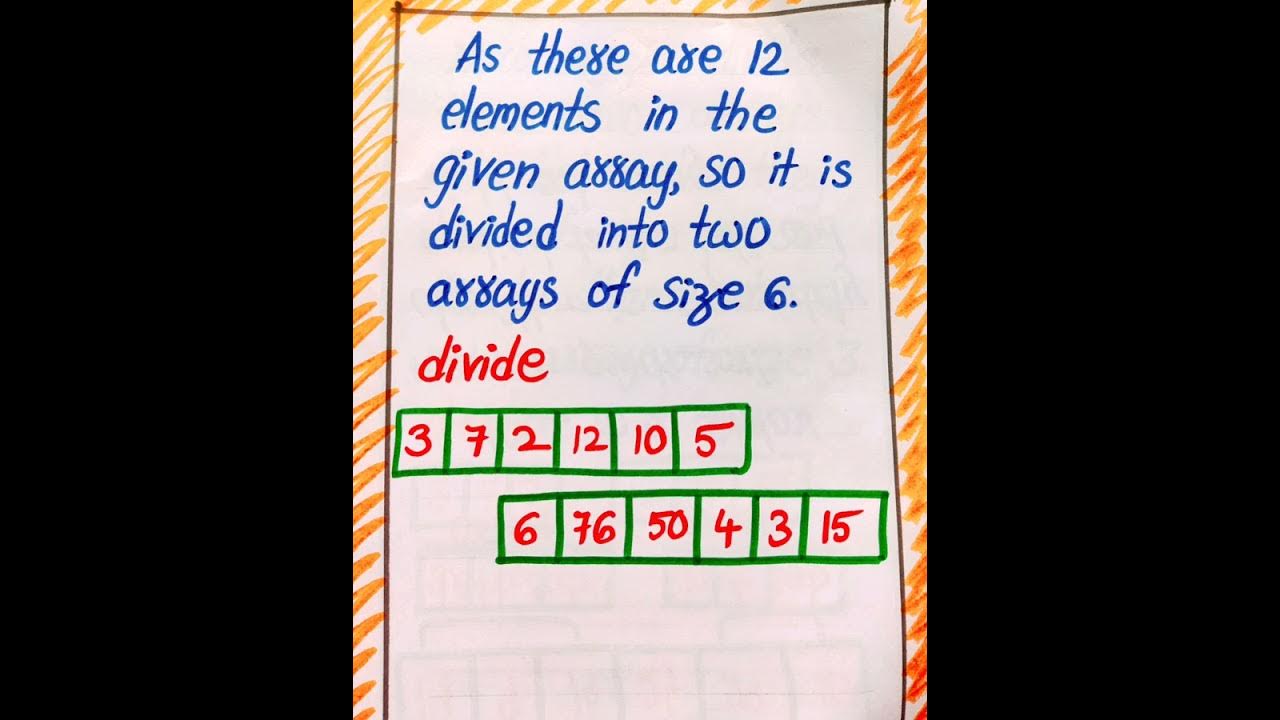 As there are 12
elements in the
given array, so it is
divided into two
arrays of size 6.
divide
3 7 2 12 10 5
6 76 50 4 3 15